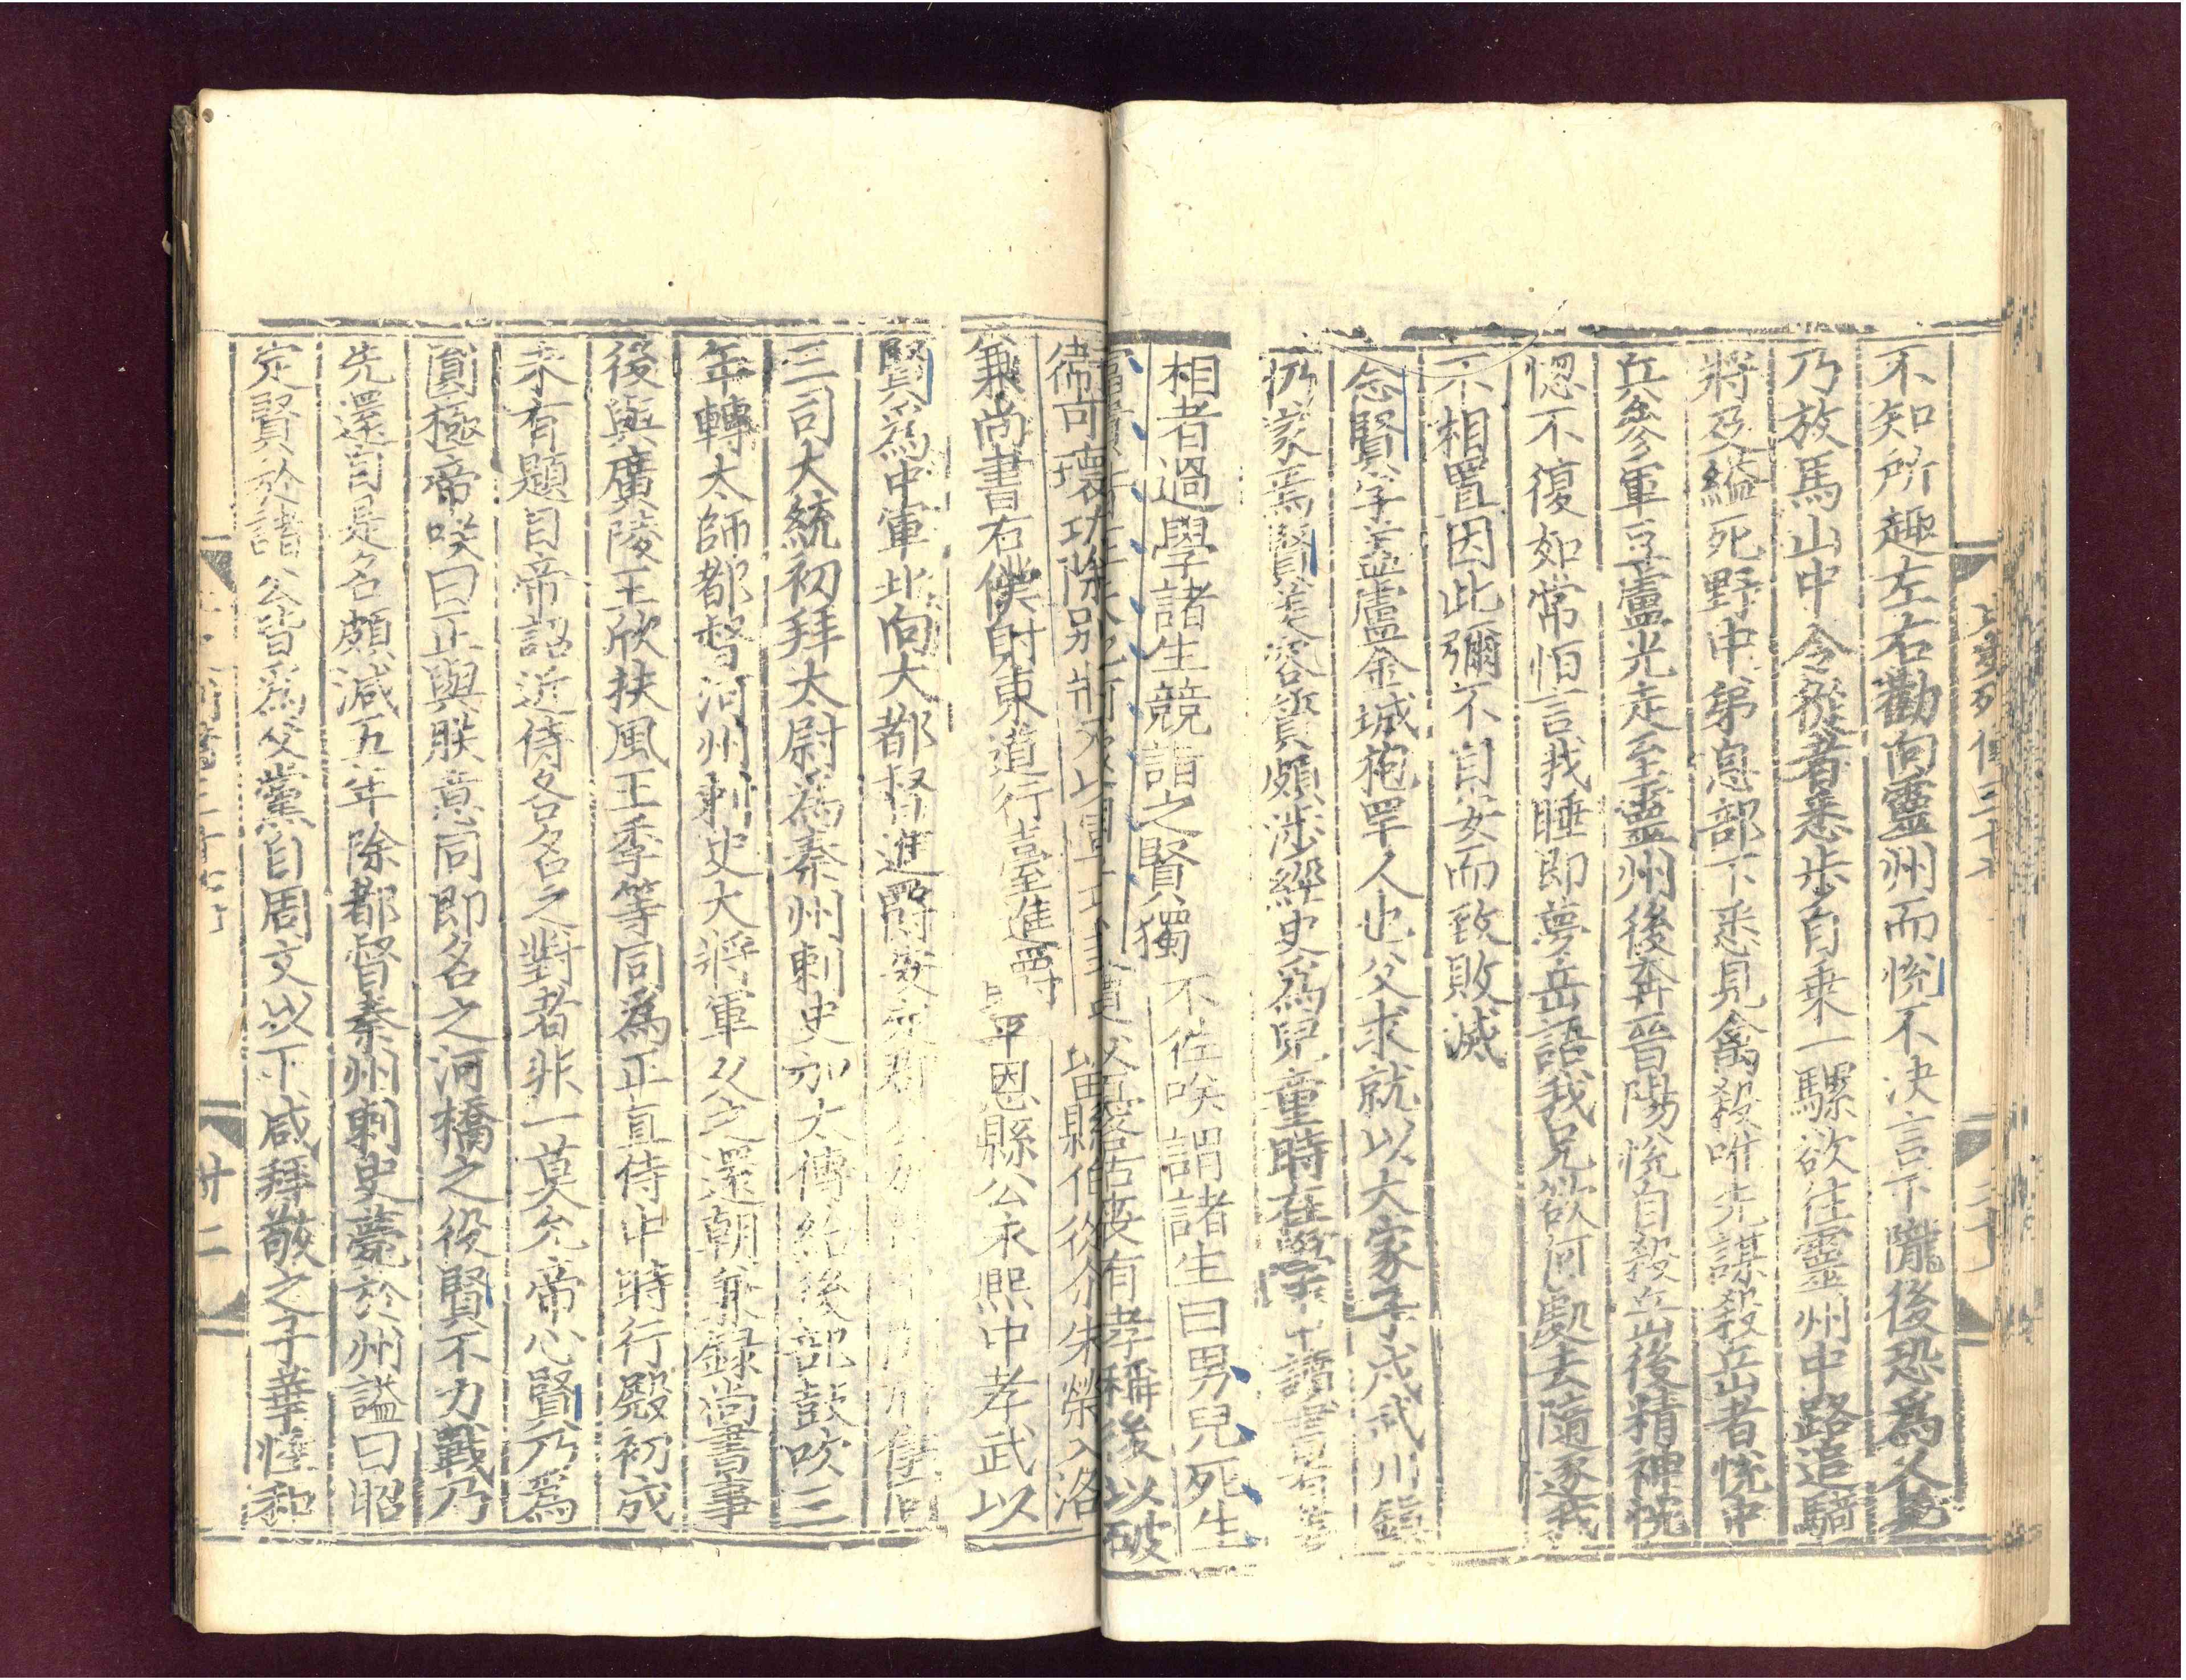 不知所趣左右勸向靈州而悦不決言下隴後恐爲人所
乃放馬山中令從者悉步自乗一騾欲往靈州中路追騎
將及縊死野中弟息部下悉見禽殺唯先謀殺岳者悦中
兵參軍豆盧光走至靈州後奔晉陽悦自殺岳後精神恍
惚不復如常恒言我睡即夢岳語我兄欲何處去隨逐我
不相置因此彌不自安而致敗滅
念賢字蓋盧金城枹罕人也父求就以大家子戍武川鎮
仍家焉賢美容質頗涉經史爲兒童時在學中讀書有善
相者過學諸生競詣之賢獨不往笑謂諸生曰男兒死生
富貴在天也何
有孝稱後以破
衛可瓌功除別將
縣伯從尒朱榮入洛
兼尚書右僕射東道行臺進爵平恩縣公永熙中孝武以
賢爲中軍北向大都督進爵安定郡
三司大統初拜太尉爲秦州刺史加太傅給後部鼓吹三
年轉太師都督河州刺史大將軍久之還朝兼録尚書事
後與廣陵王欣扶風王季等同爲正直侍中時行殿初成
未有題目帝詔近侍各名之對者非一莫允帝心賢乃爲
圓極帝咲曰正與朕意同即名之河橋之役賢不力戰乃
先還自是名頗減五年除都督秦州刺史薨於州謚曰昭
定賢於諸公皆爲父黨自周文以下咸拜敬之子華性和
廿二